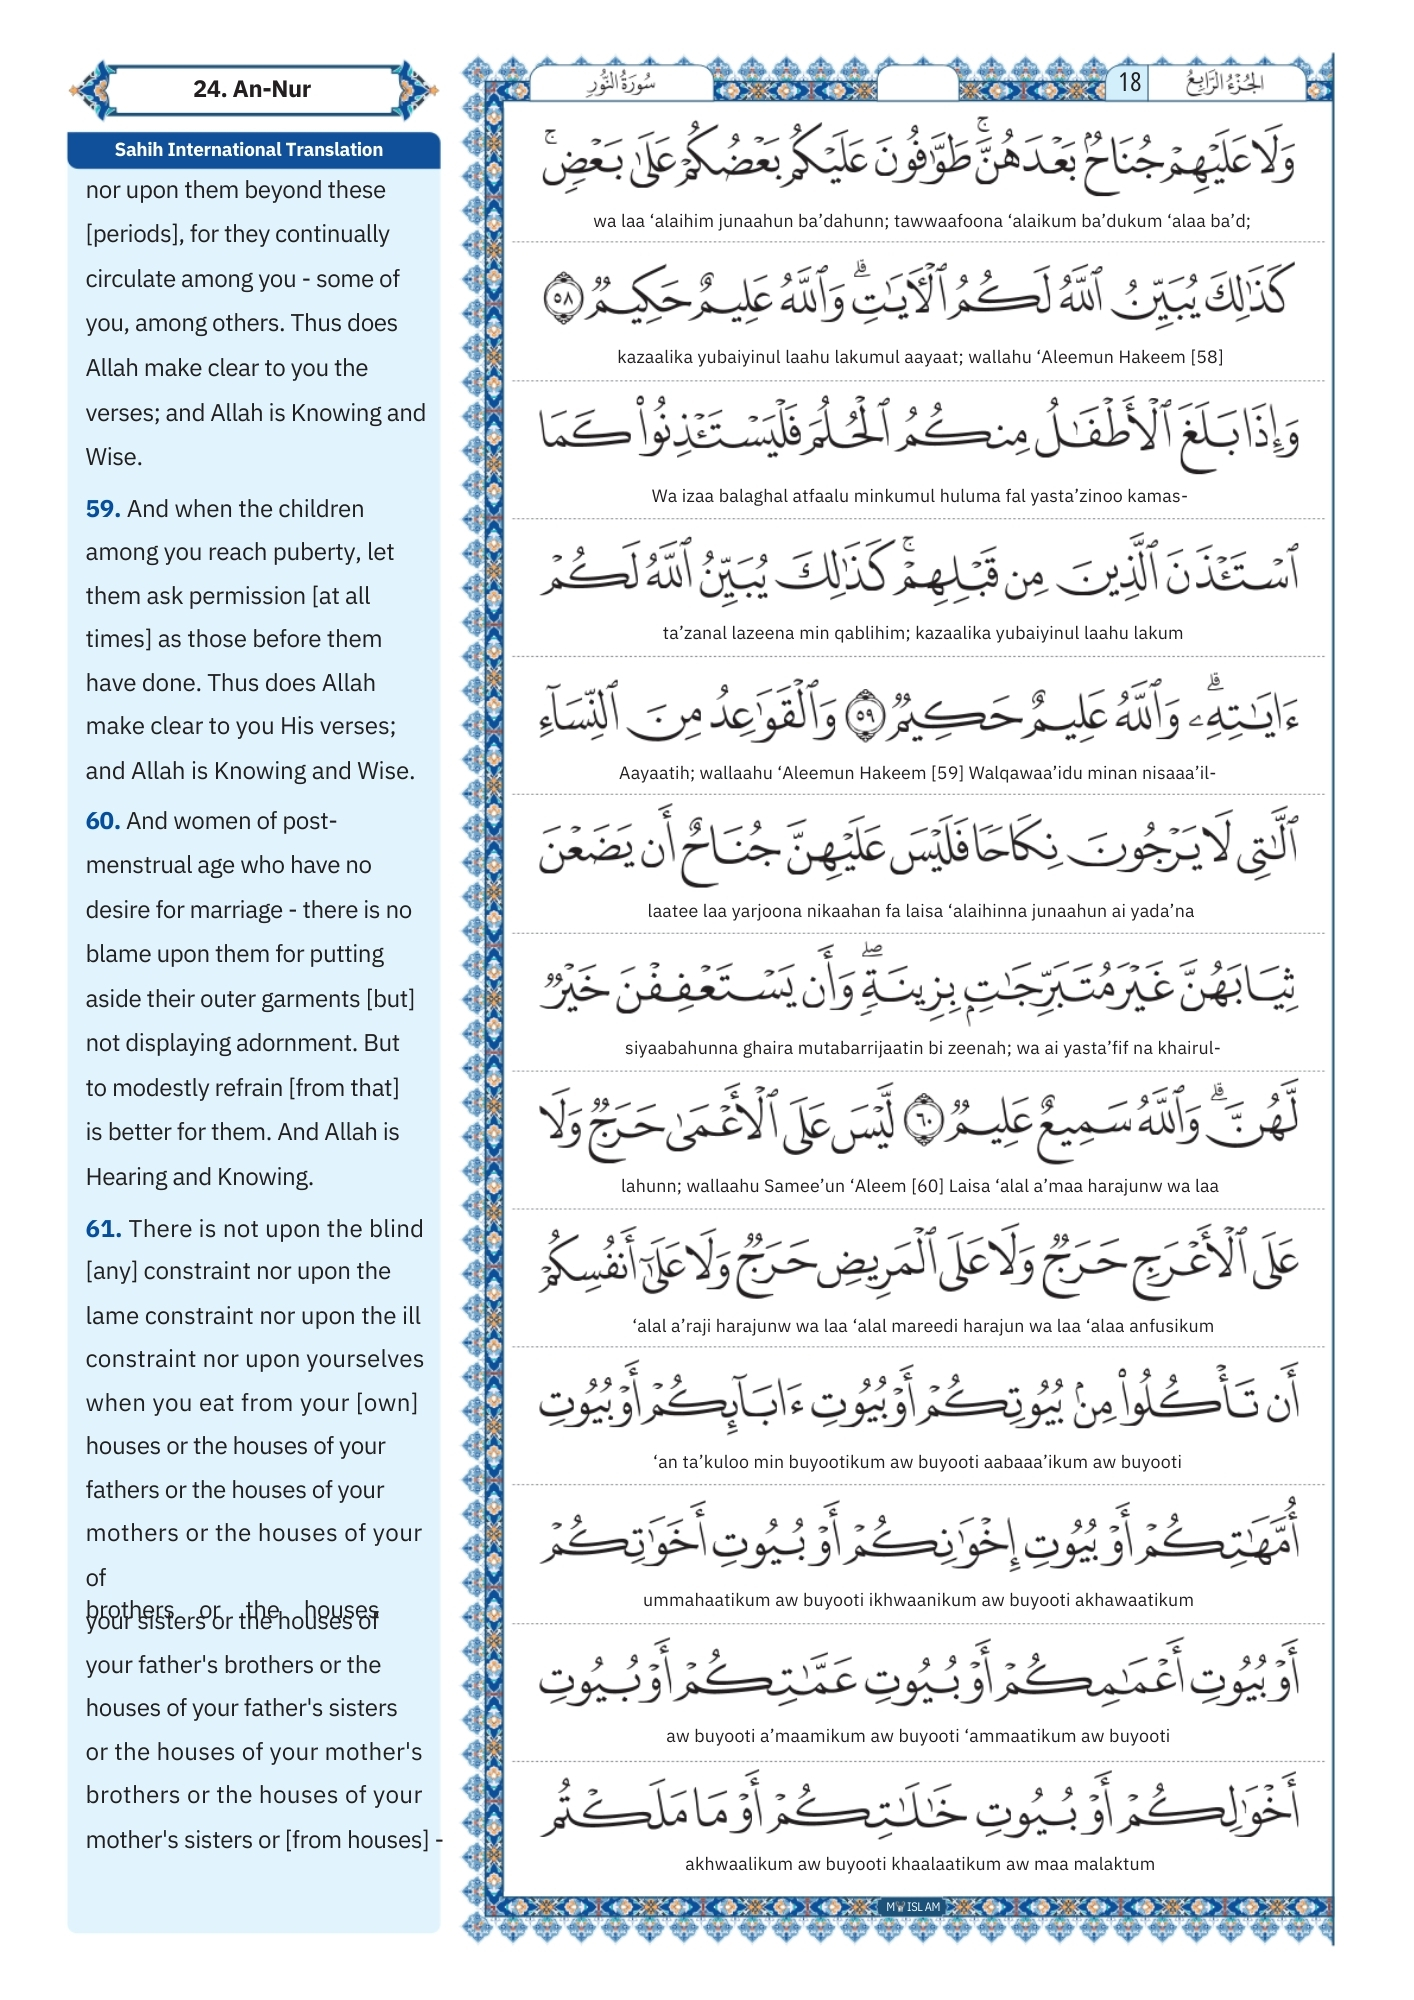 24. An-Nur
Sahih International Translation
nor upon them beyond these
[periods], for they continually
circulate among you - some of
you, among others. Thus does
Allah make clear to you the
verses; and Allah is Knowing and
Wise.
59. And when the children
among you reach puberty, let
them ask permission [at all
times] as those before them
have done. Thus does Allah
make clear to you His verses;
and Allah is Knowing and Wise.
60. And women of post-
menstrual age who have no
desire for marriage - there is no
blame upon them for putting
aside their outer garments [but]
not displaying adornment. But
to modestly refrain [from that]
is better for them. And Allah is
Hearing and Knowing.
61. There is not upon the blind
[any] constraint nor upon the
lame constraint nor upon the ill
constraint nor upon yourselves
when you eat from your [own]
houses or the houses of your
fathers or the houses of your
mothers or the houses of your
of
brothers or the houses
your sisters or the houses of
your father's brothers or the
houses of your father's sisters
or the houses of your mother's
brothers or the houses of your
mother's sisters or [from houses] -
سُورَةُ النُّورِ
18
الجُزْءُ الرَّابِعُ
وَلَا عَلَيْهِمْ جُنَاحٌۢ بَعْدَهُنَّ ۚ طَوَّٰفُونَ عَلَيْكُم بَعْضُكُمْ عَلَىٰ بَعْضٍ ۚ
wa laa ‘alaihim junaahun ba’dahunn; tawwaafoona ‘alaikum ba’dukum ‘alaa ba’d;
كَذَٰلِكَ يُبَيِّنُ ٱللَّهُ لَكُمُ ٱلْـَٔايَـٰتِ ۗ وَٱللَّهُ عَلِيمٌ حَكِيمٌ ٥٨
kazaalika yubaiyinul laahu lakumul aayaat; wallahu ‘Aleemun Hakeem [58]
وَإِذَا بَلَغَ ٱلْأَطْفَـٰلُ مِنكُمُ ٱلْحُلُمَ فَلْيَسْتَـْٔذِنُوا۟ كَمَا
Wa izaa balaghal atfaalu minkumul huluma fal yasta’zinoo kamas-
ٱسْتَـْٔذَنَ ٱلَّذِينَ مِن قَبْلِهِمْ ۚ كَذَٰلِكَ يُبَيِّنُ ٱللَّهُ لَكُمْ
ta’zanal lazeena min qablihim; kazaalika yubaiyinul laahu lakum
ءَايَـٰتِهِۦ ۗ وَٱللَّهُ عَلِيمٌ حَكِيمٌ ٥٩ وَٱلْقَوَٰعِدُ مِنَ ٱلنِّسَآءِ
Aayaatih; wallaahu ‘Aleemun Hakeem [59] Walqawaa’idu minan nisaaa’il-
ٱلَّـٰتِى لَا يَرْجُونَ نِكَاحًا فَلَيْسَ عَلَيْهِنَّ جُنَاحٌ أَن يَضَعْنَ
laatee laa yarjoona nikaahan fa laisa ‘alaihinna junaahun ai yada’na
ثِيَابَهُنَّ غَيْرَ مُتَبَرِّجَـٰتٍۭ بِزِينَةٍ ۖ وَأَن يَسْتَعْفِفْنَ خَيْرٌ
siyaabahunna ghaira mutabarrijaatin bi zeenah; wa ai yasta’fif na khairul-
لَّهُنَّ ۗ وَٱللَّهُ سَمِيعٌ عَلِيمٌ ٦٠ لَّيْسَ عَلَى ٱلْأَعْمَىٰ حَرَجٌ وَلَا
lahunn; wallaahu Samee’un ‘Aleem [60] Laisa ‘alal a’maa harajunw wa laa
عَلَى ٱلْأَعْرَجِ حَرَجٌ وَلَا عَلَى ٱلْمَرِيضِ حَرَجٌ وَلَا عَلَىٰٓ أَنفُسِكُمْ
‘alal a’raji harajunw wa laa ‘alal mareedi harajun wa laa ‘alaa anfusikum
أَن تَأْكُلُوا۟ مِنۢ بُيُوتِكُمْ أَوْ بُيُوتِ ءَابَآئِكُمْ أَوْ بُيُوتِ
‘an ta’kuloo min buyootikum aw buyooti aabaaa’ikum aw buyooti
أُمَّهَـٰتِكُمْ أَوْ بُيُوتِ إِخْوَٰنِكُمْ أَوْ بُيُوتِ أَخَوَٰتِكُمْ
ummahaatikum aw buyooti ikhwaanikum aw buyooti akhawaatikum
أَوْ بُيُوتِ أَعْمَـٰمِكُمْ أَوْ بُيُوتِ عَمَّـٰتِكُمْ أَوْ بُيُوتِ
aw buyooti a’maamikum aw buyooti ‘ammaatikum aw buyooti
أَخْوَٰلِكُمْ أَوْ بُيُوتِ خَـٰلَـٰتِكُمْ أَوْ مَا مَلَكْتُم
akhwaalikum aw buyooti khaalaatikum aw maa malaktum
MY ISLAM